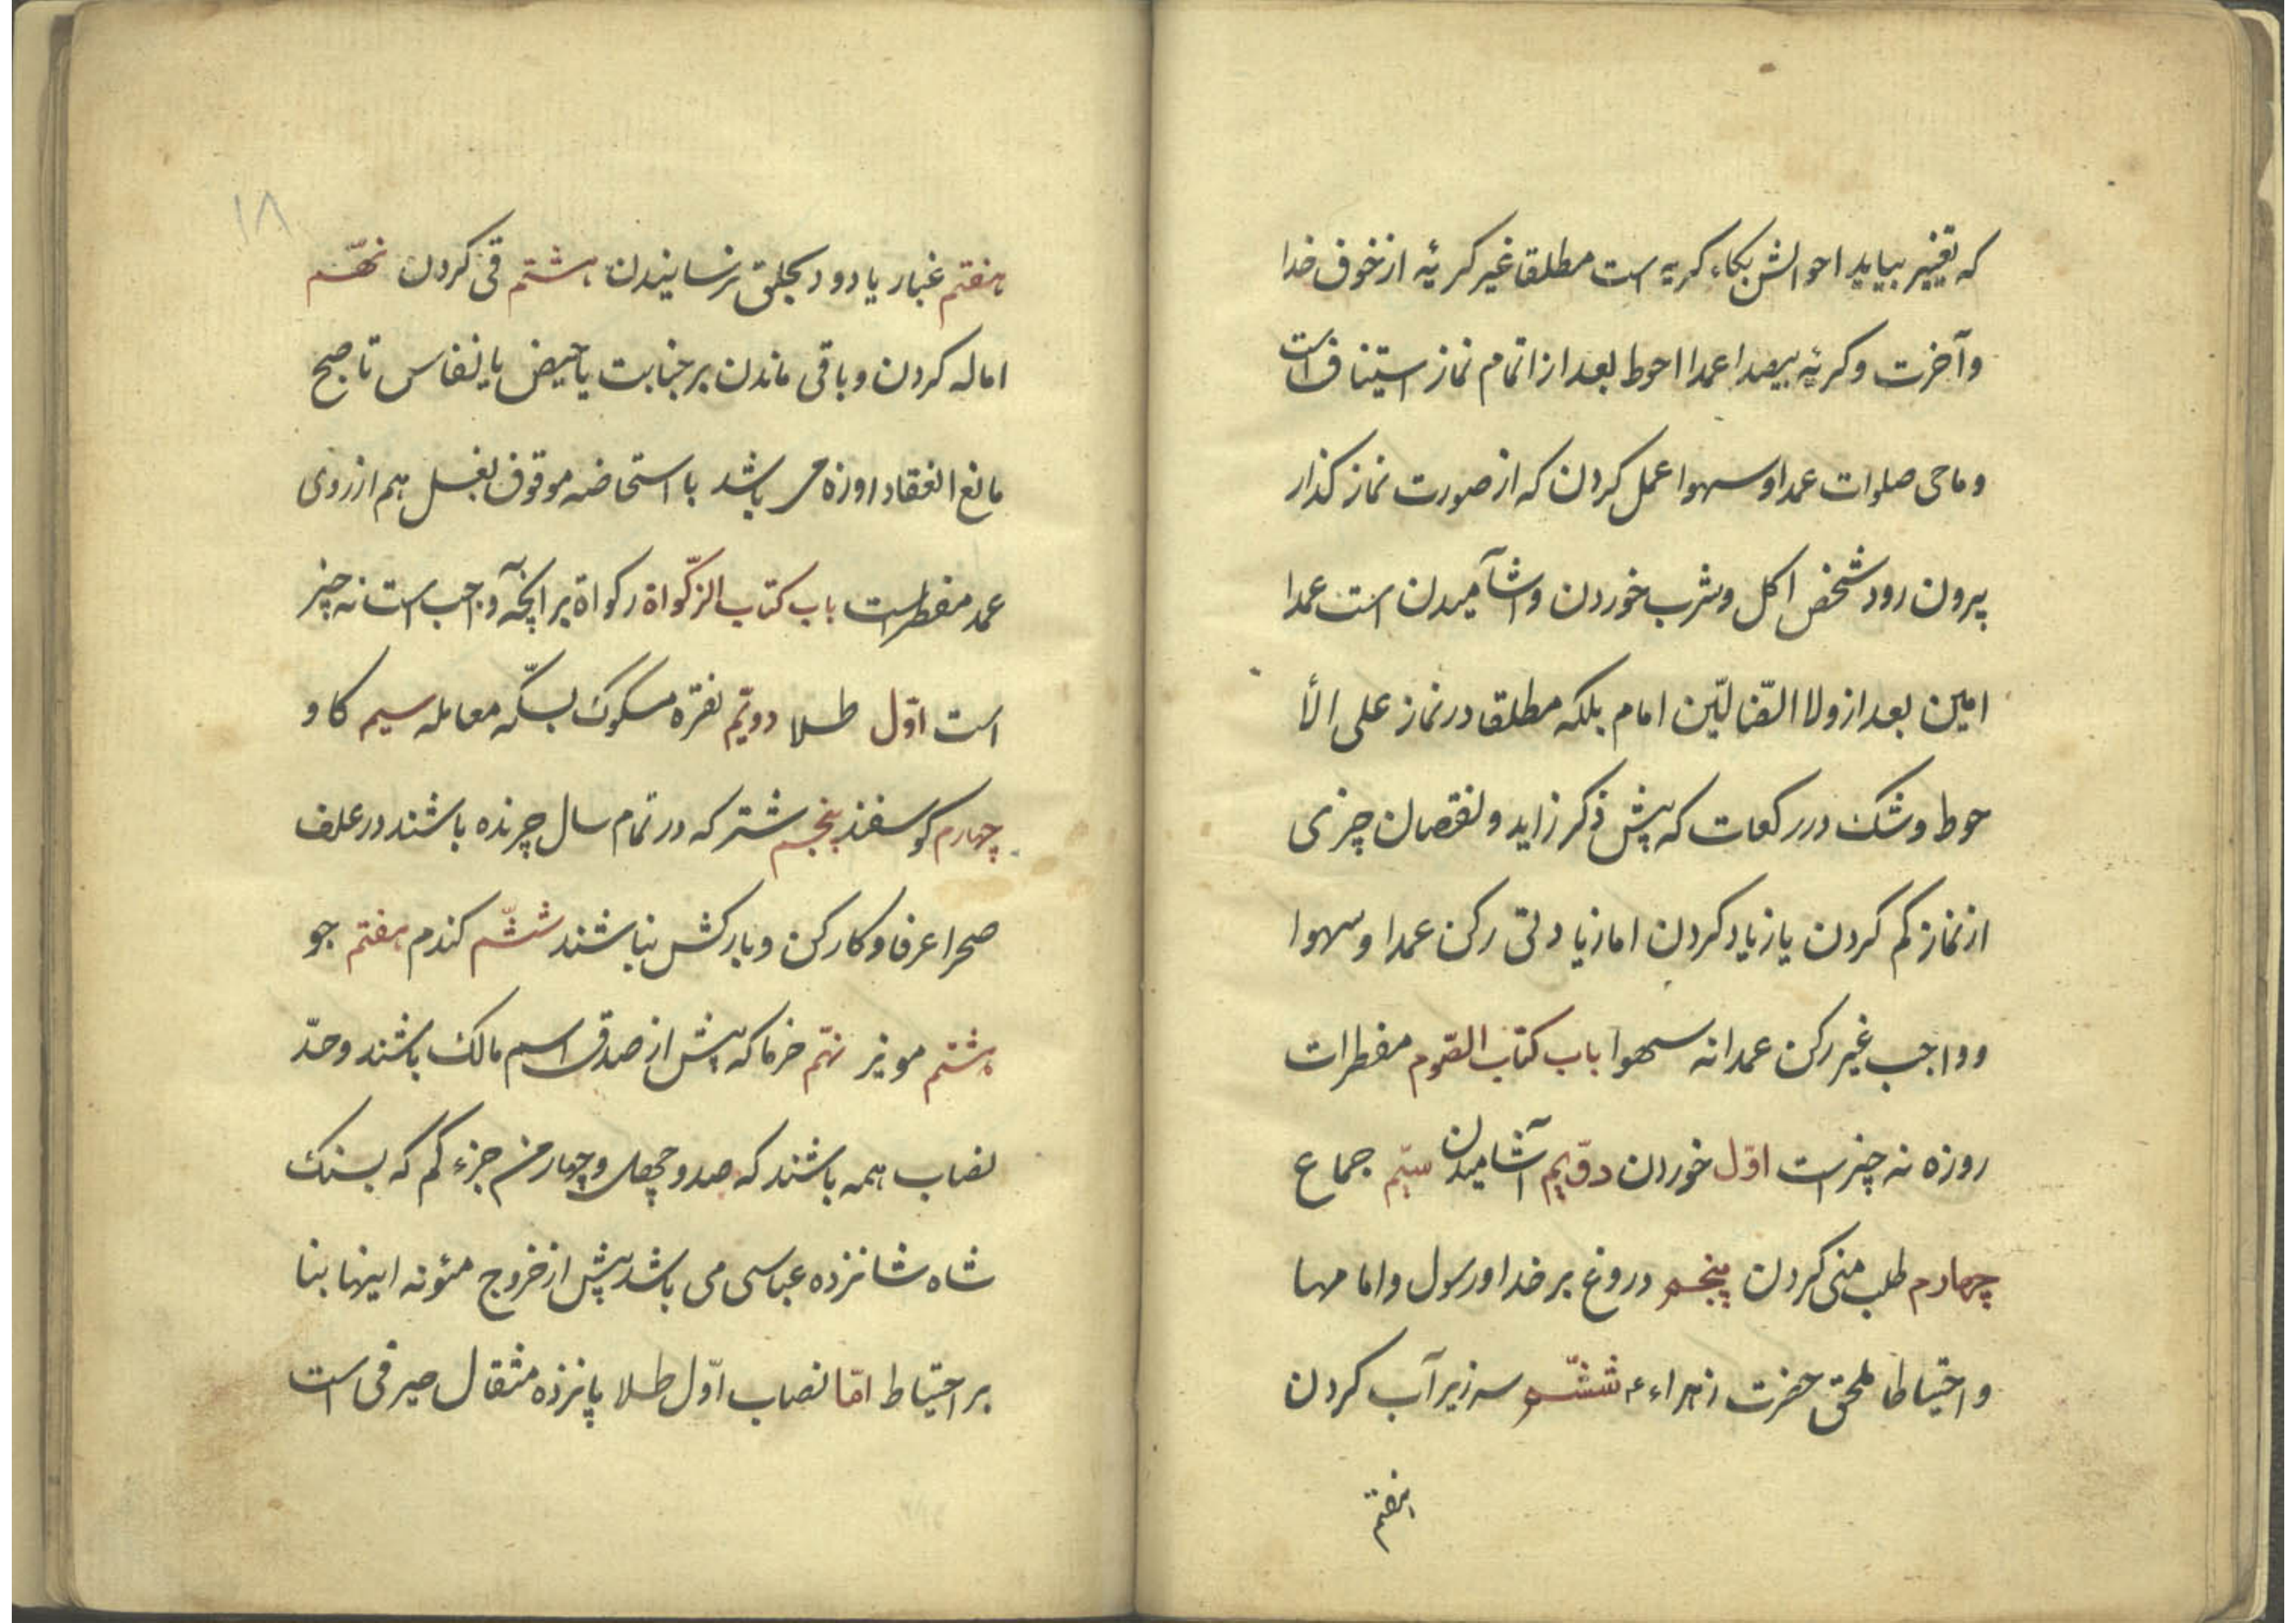 که تغییر بیاید احوالش بکاء کریه است مطلقا غیر کریۀ از خوف خدا
وآخرت و کریۀ بیصدا عمدا احوط بعد از اتمام نماز استیناف است
و ماحی صلوات عمدا و سهوا عمل کردن که از صورت نماز کذار
بیرون رود شخص اکل و شرب خوردن و اشآمیدن است عمدا
امین بعد از ولا الضّالّین امام بلکه مطلقا در نماز علی الأ
حوط و شک در رکعات که پیش ذکر زاید و نقصان چیزی
از نماز کم کردن یا زیاد کردن اما زیادتی رکن عمدا و سهوا
و واجب غیر رکن عمدا نه سهوا باب کتاب الصّوم مفطرات
روزه نه چیز است اوّل خوردن دوّیم آشامیدن سیّم جماع
چهارم طلب منی کردن پنجم دروغ بر خدا و رسول و امامها
و احتیاطا ملحق حضرت زهراء ع ششّم سر زیر آب کردن
هفتم
۱۸
هفتم غبار یا دود بحلق رسانیدن هشتم قی کردن نهّم
اماله کردن و باقی ماندن بر جنابت یا حیض یا نفاس تا صبح
مانع انعقاد روزه می باشد با استحاضه موقوف بغسل هم از روی
عمد مفطر است باب کتاب الزّکواة زکواة بر آنچه واجب است نه چیز
است اوّل طلا دویّم نقره مسکوک بسکّه معامله سیم کاو
چهارم کوسفند پنجم شتر که در تمام سال چرنده باشند در علف
صحرا عرفا و کارکن و بارکش نباشند ششّم کندم هفتم جو
هشتم مویز نهّم خرما که پیش از صدق اسم مالک باشند و حدّ
نصاب همه باشند که صد و چهل و چهار من جزء کم که بسنک
شاه شانزده عباسی می باشد پیش از خروج مئونه اینها بنا
بر احتیاط امّا نصاب اوّل طلا پانزده مثقال صیرفی است